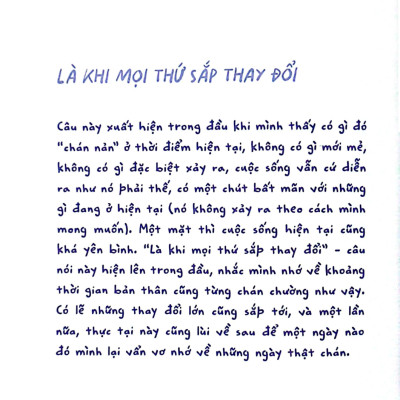 LÀ KHI MỌI THỨ SẮP THAY ĐỔI
Câu này xuất hiện trong đầu khi mình thấy có gì đó
"chán nản" ở thời điểm hiện tại, không có gì mới mẻ,
không có gì đặc biệt xảy ra, cuộc sống vẫn cứ diễn
ra như nó phải thế, có một chút bất mãn với những
gì đang ở hiện tại (nó không xảy ra theo cách mình
mong muốn). Một mặt thì cuộc sống hiện tại cũng
khá yên bình. "Là khi mọi thứ sắp thay đổi" - câu
nói này hiện lên trong đầu, nhắc mình nhớ về khoảng
thời gian bản thân cũng từng chán chường như vậy.
Có lẽ những thay đổi lớn cũng sắp tới, và một lần
nữa, thực tại này cũng lùi về sau để một ngày nào
đó mình lại vẩn vơ nhớ về những ngày thật chán.